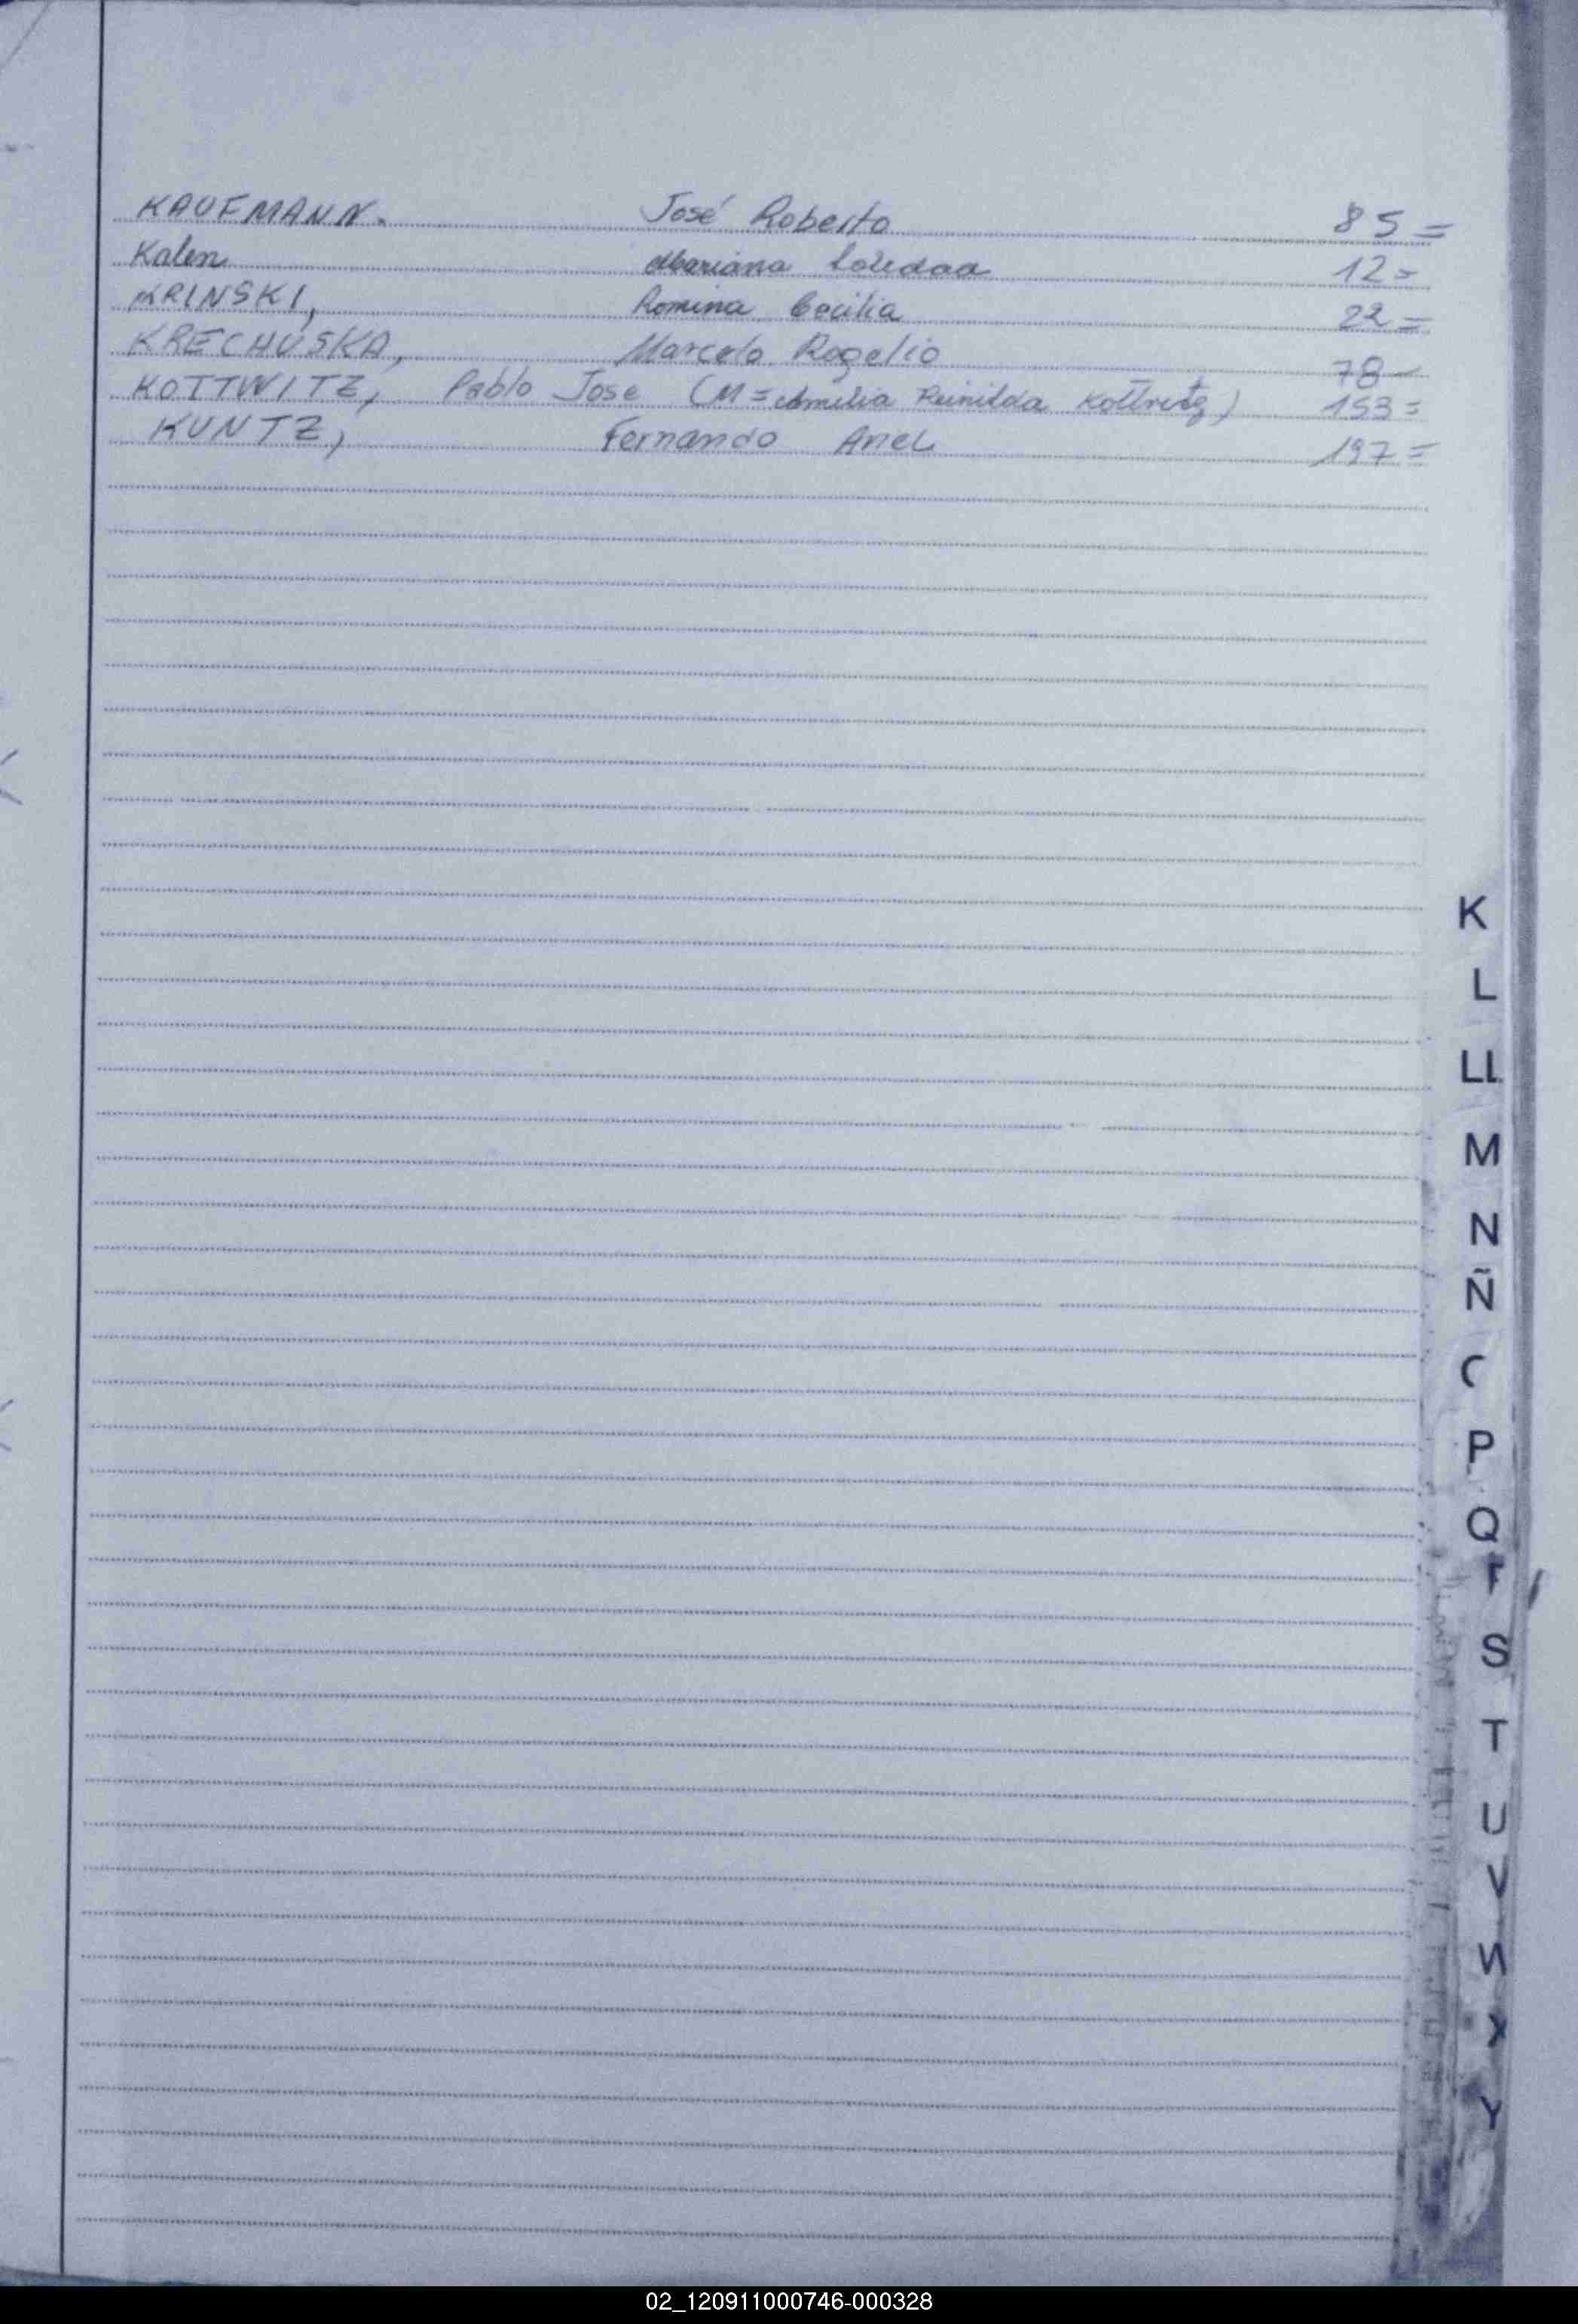 KAUFMANN. José Roberto 85=
Kalen Mariana Soledad 12=
KRINSKI, Romina Cecilia 22=
KRECHUSKA, Marcelo Rogelio 78-
KOTTWITZ, Pablo Jose (M= Amilia Reinilda Kottwitz) 153=
KUNTZ, Fernando Ariel 197=
K
L
LL
M
N
Ñ
O
P
Q
R
S
T
U
V
W
X
Y
02_120911000746-000328